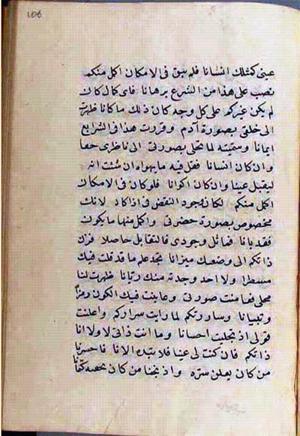 عينى كمثلك انسانا فلم يبق فى الامكان اكمل منكم
نصب على هذا من الشرع برهانا فاى كمال كان
لم يكن غيركم على كل وجه كان ذلك ما كانا ظهرت
الى خلقى بصورة آدم وقررت هذا فى الشرايع
ايمانا وسميته لما تجلى بصورتى الى ناظرى حقا
وان كان انسانا فقل فيه ما يهواه ان شئت انه
ليقبل عينا وان كان اكوانا فلو كان فى الامكان
اكمل منكم لكان وجود النقص فى اذا كانا لانك
مخصوص بصورة حضرتى واكمل منها ما يكون
فقد بانا فقائل وجودى فالتقابل حاصلا فزن
ذاتكم الى وضعتك ميزانا تجد علم ما قد قلت فيك
مسطرا ولا احد وجدته منك ربانا ظهرت لنا
مجلى فعاينت صورتى وعاينت فيك الكون رمزا
وتبيانا وساررتكم لما رايت سراركم واعلنت
قولى اذ تجليت احسانا وما انت ذاتى لا ولا انا
ذاتكم فان كنت لى عينا فلا تبده الانا فاخسرنا
من كان يعلن سره واربحنا من كان يخصه كتمانا